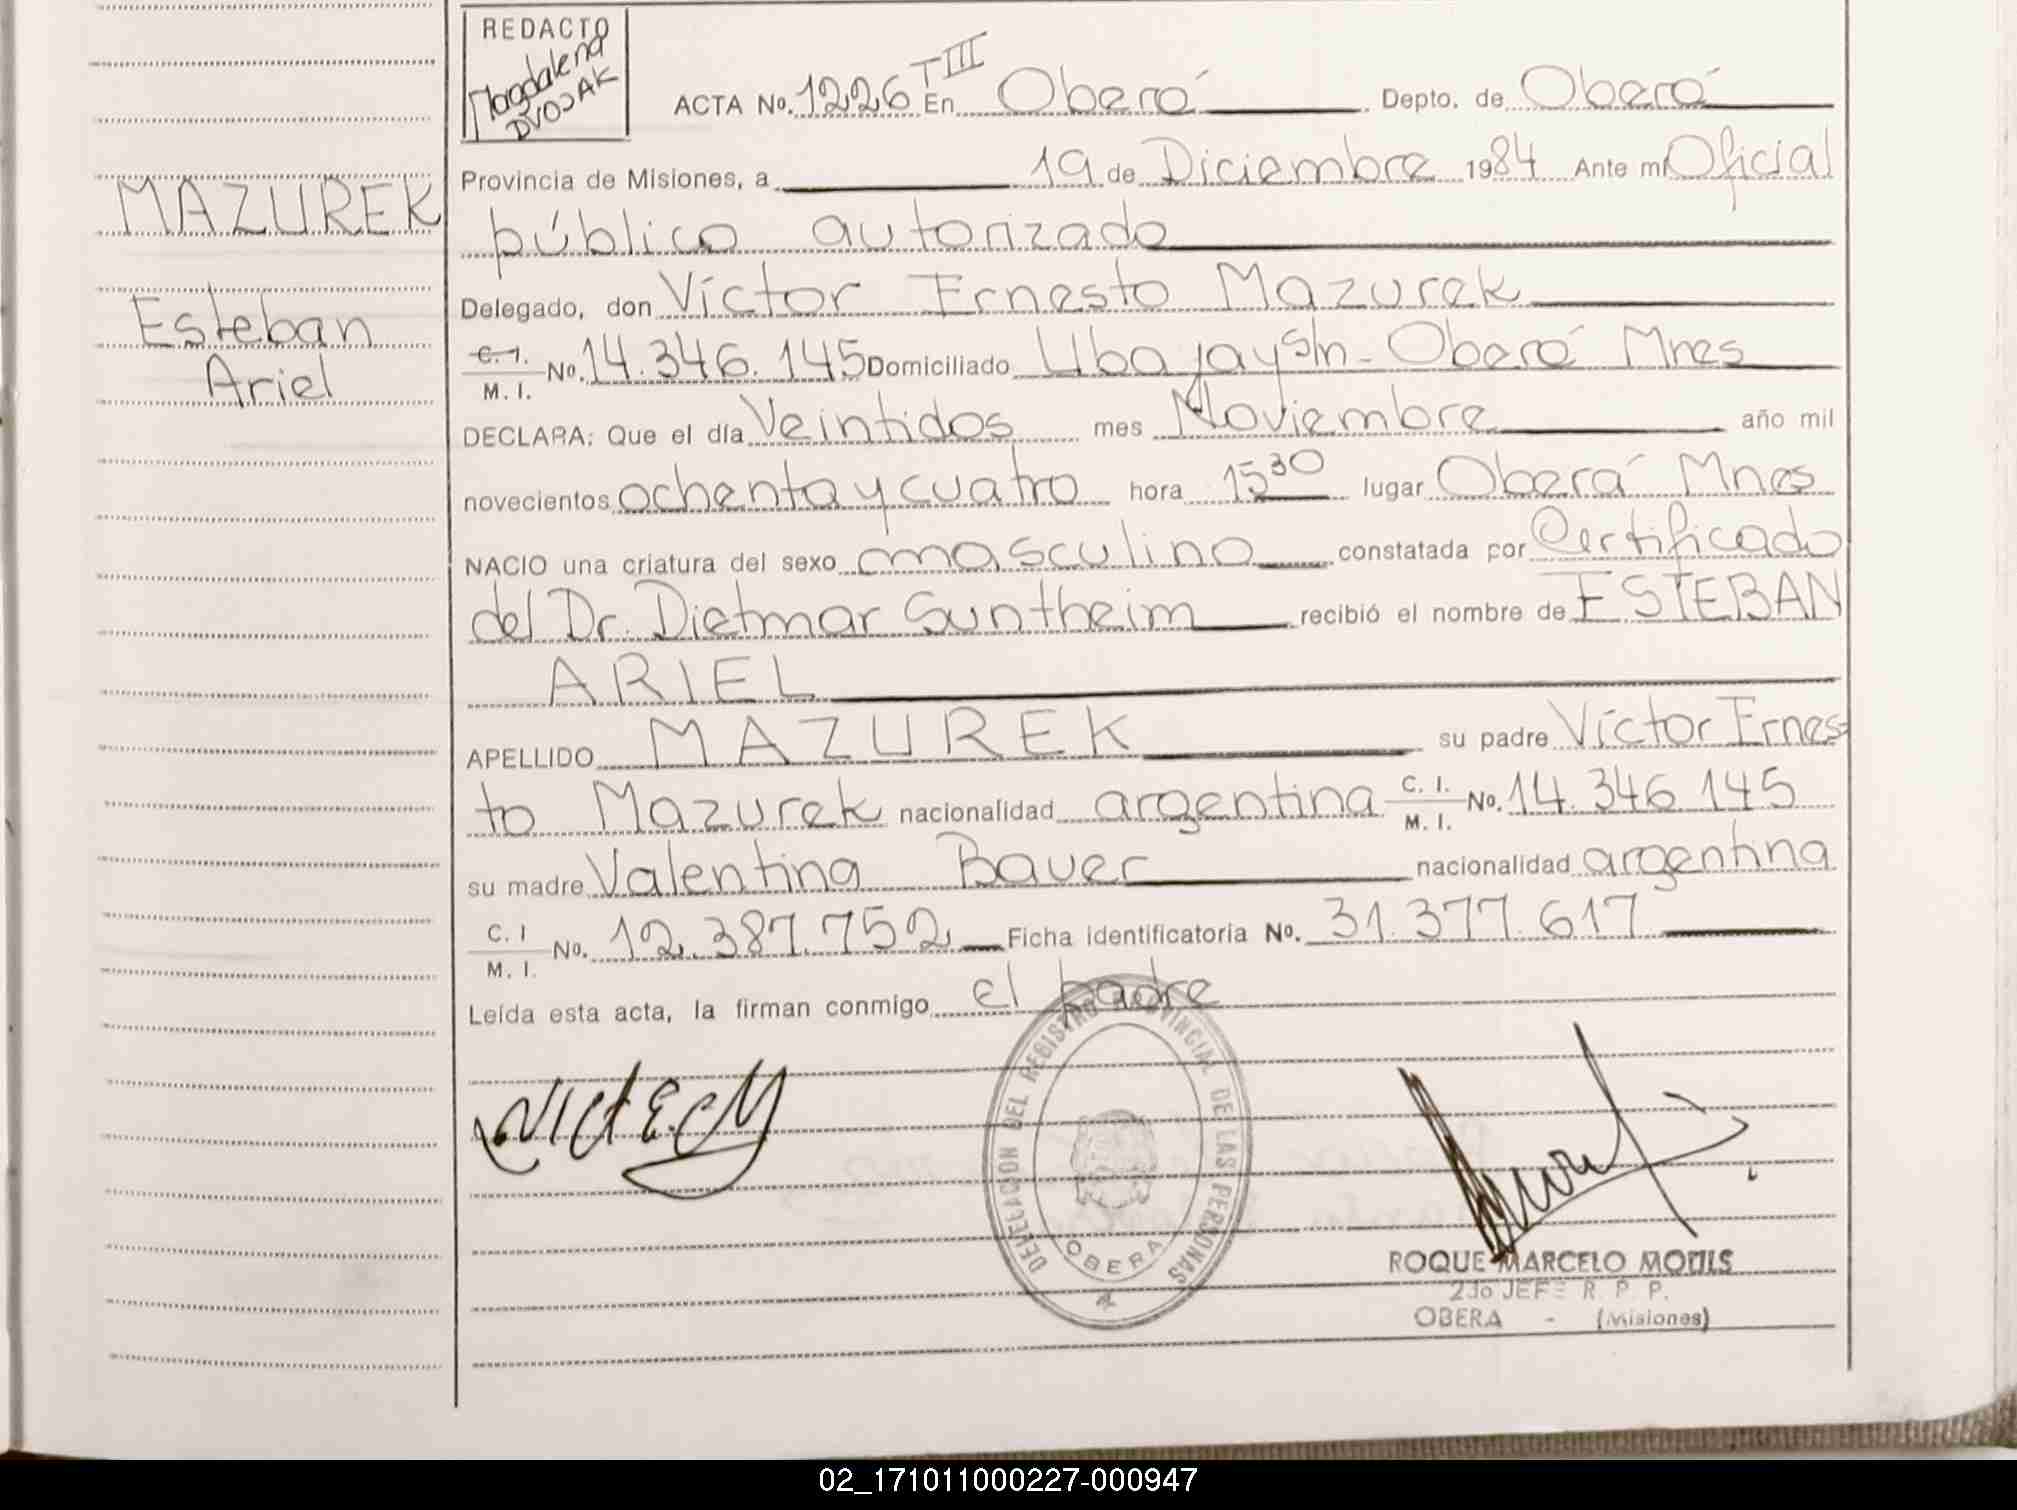 REDACTO
Magdalena
DVOJAK
ACTA No. 1226 T III En Oberá Depto. de Oberá
Provincia de Misiones, a 19 de Diciembre 1984 Ante mí Oficial
público autorizado
MAZUREK
Delegado, don Víctor Ernesto Mazurek
Esteban
Ariel
C. I.
M. I. No. 14.346.145 Domiciliado Ubajay s/n - Oberá Mnes
DECLARA: Que el día Veintidos mes Noviembre año mil
novecientos ochenta y cuatro hora 15 30 lugar Oberá Mnes
NACIO una criatura del sexo masculino constatada por Certificado
del Dr. Dietmar Suntheim recibió el nombre de ESTEBAN
ARIEL
APELLIDO MAZUREK su padre Víctor Ernes
to Mazurek nacionalidad argentina C. I. M. I. No. 14.346.145
su madre Valentina Bauer nacionalidad argentina
C. I M. I. No. 12.387.752 Ficha identificatoria No. 31.377.617
Leída esta acta, la firman conmigo el padre
DELEGACION DEL REGISTRO PROVINCIAL DE LAS PERSONAS
OBERA
ROQUE MARCELO MOTTIS
2do JEFE R. P. P.
OBERA - (Misiones)
02_171011000227-000947